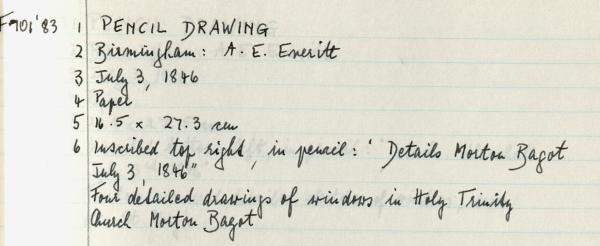 F901'83 1 PENCIL DRAWING
2 Birmingham: A. E. Everitt
3 July 3, 1846
4 Paper
5 16.5 x 27.3 cm
6 Inscribed top right, in pencil: ' Details Morton Bagot
July 3, 1846"
Four detailed drawings of windows in Holy Trinity
Church Morton Bagot